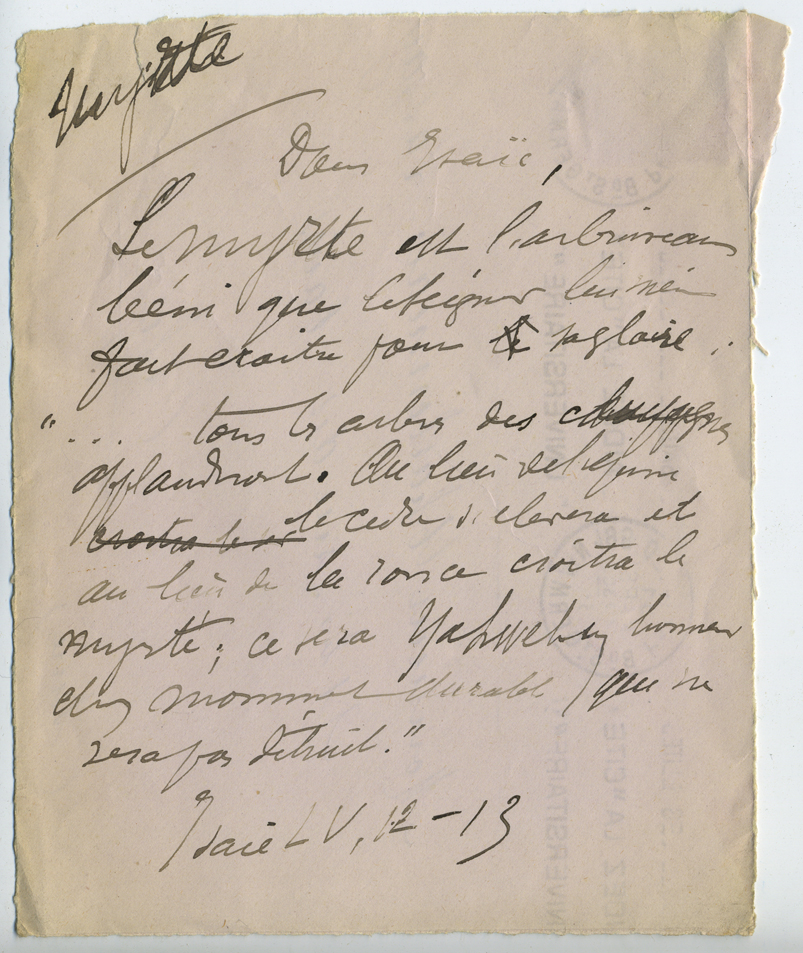 Myrte
Dans Isaïe,
Le myrte est l'arbrisseau
béni que le Seigneur lui même
fait croitre pour sa gloire :
"... tous les arbres des
applaudiront. Au lieu de l'épine
le cèdre s'elevera et
au lieu de la ronce croîtra le
myrte ; ce sera Yahweh un honneur
un monument durable qui ne
sera pas détruit."
Isaïe LV, 12-13